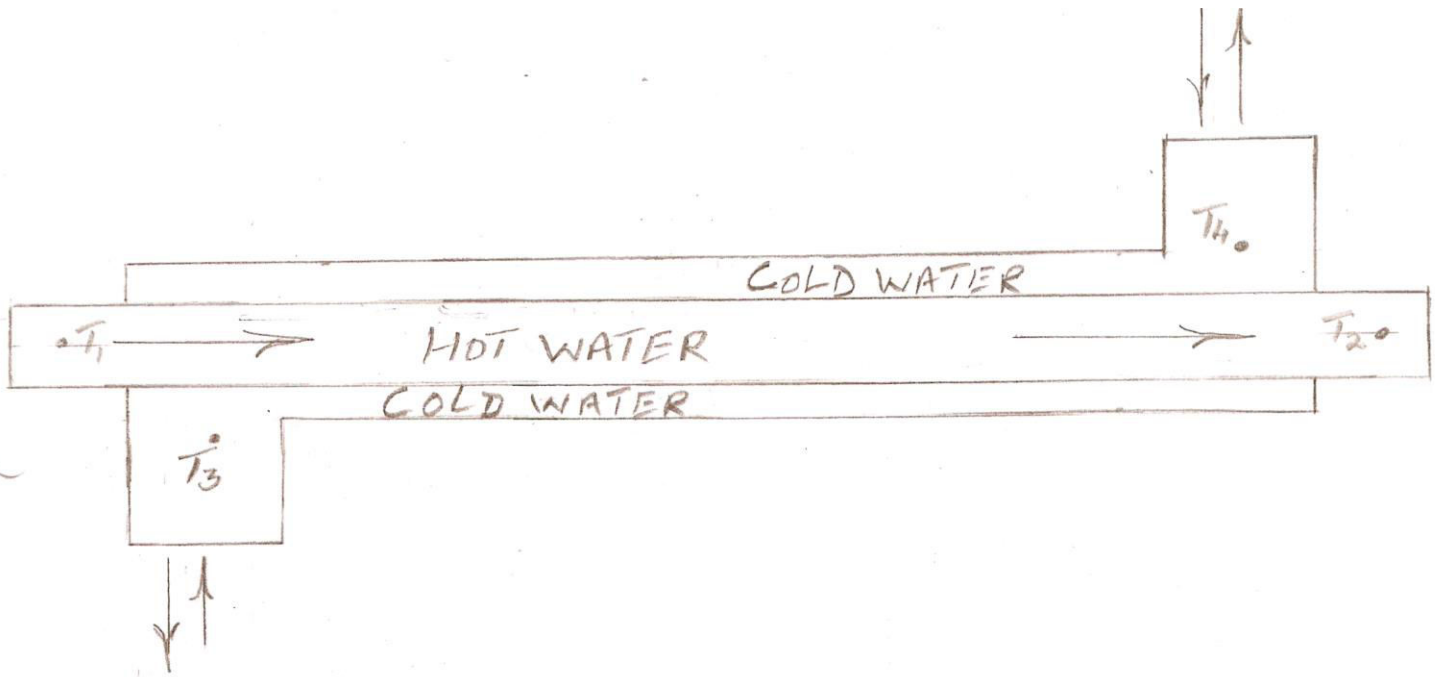 T4
COLD WATER
T1 HOT WATER T2
COLD WATER
T3